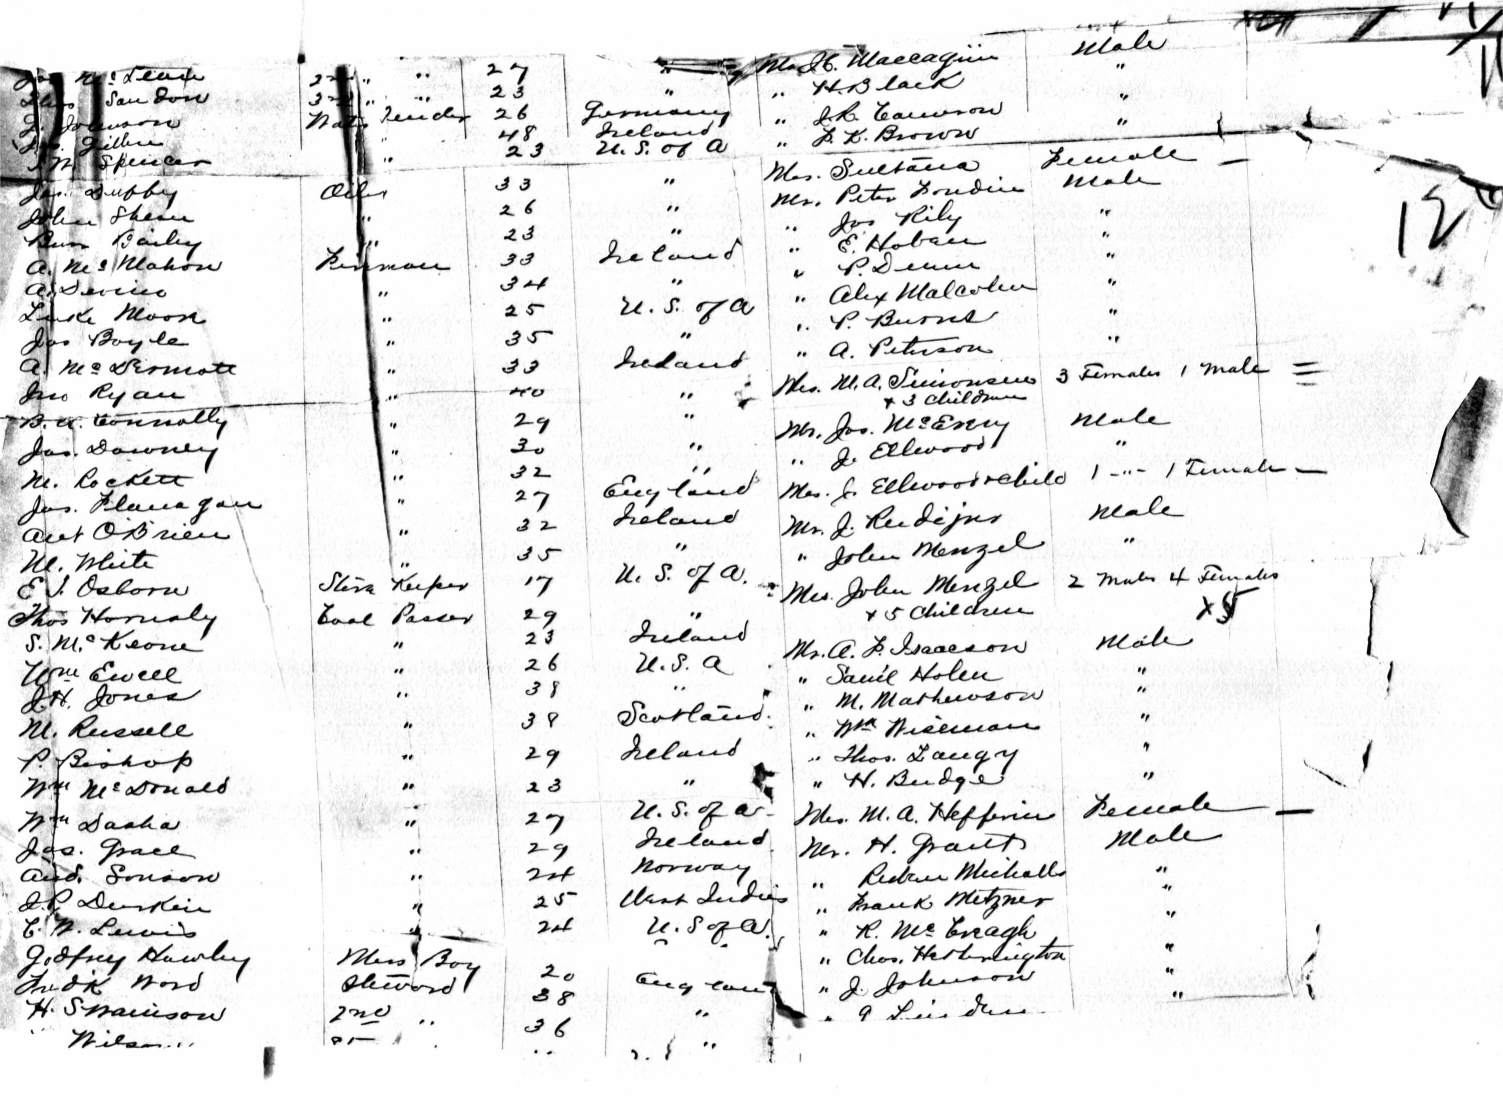 Jas Mc 3rd " " 27 "
Thos San don 3rd " " 23 "
J. Johnson Water Tender 26 Germany
Jas. " 48 Ireland
Spencer " 23 U. S. of A
Jas. Duffy Oiler 33 "
John Shean " 26 "
Bailey " 23 "
A. Mc Mahon Fireman 33 Ireland
A. Devino " 34 "
Luke Moon " 25 U. S. of A
Jas Boyle " 35 "
A. Mc Dermott " 33 Ireland
Jno Ryan " 40 "
B. A. Connolly " 29 "
Jas. Downey " 30 "
M. Rockett " 32 "
Jas. Flanagan " 27 England
Ant O'Brien " 32 Ireland
M. White " 35 "
E J. Osborn Store Keeper 17 U. S. of A.
Thos Hornsby Coal Passer 29 "
S. Mc Keone " 23 Ireland
Wm Ewell " 26 U. S. A
J. H. Jones " 38 "
M. Russell " 38 Scotland
P. Bishop " 29 Ireland
Wm Mc Donald " 23 "
Wm Dasha " 27 U. S. of A
Jas. Grace " 29 Ireland
And. Sonson " 24 Norway
J. P. Durkin " 25 West Indies
C. W. Lewis " 24 U. S of A.
Godfrey Hawley Mess Boy 20 "
Fred'k Word Steward 38 England
H. Swainson 2nd " 36 "
Wilson "
Mr J. C. Maccagiin Male
" H. Black "
" J. R. Cameron "
" F. K. Brown "
Mrs. Sultana Female —
Mr. Peter Fondin Male
" Jas Rily "
" E. Hoban "
" P. Dunn "
" Alex Malcolm "
" P. Burns "
" A. Peterson "
Mrs. M. A. Simonsen 3 Females 1 Male =
+ 3 children
Mr. Jas. McEvry Male
" J. Ellwood "
Mrs. J. Ellwood + child 1 -"- 1 Female —
Mr. J. Rudijnr Male
" John Menzel "
Mrs. John Menzel 2 Males 4 Females
+ 5 children x5
Mr. A. F. Isaacson Male
" Saml Holen "
" M. Mathewson "
" Wm Wiseman "
" Thos. Langy "
" H. Budge "
Mrs. M. A. Hefferin Female —
Mr. H. Grant Male
" Ruben Micholls "
" Frank Metzner "
" R. Mc Creagh "
" Chas. Hetherington "
" J. Johnson "
" "
12